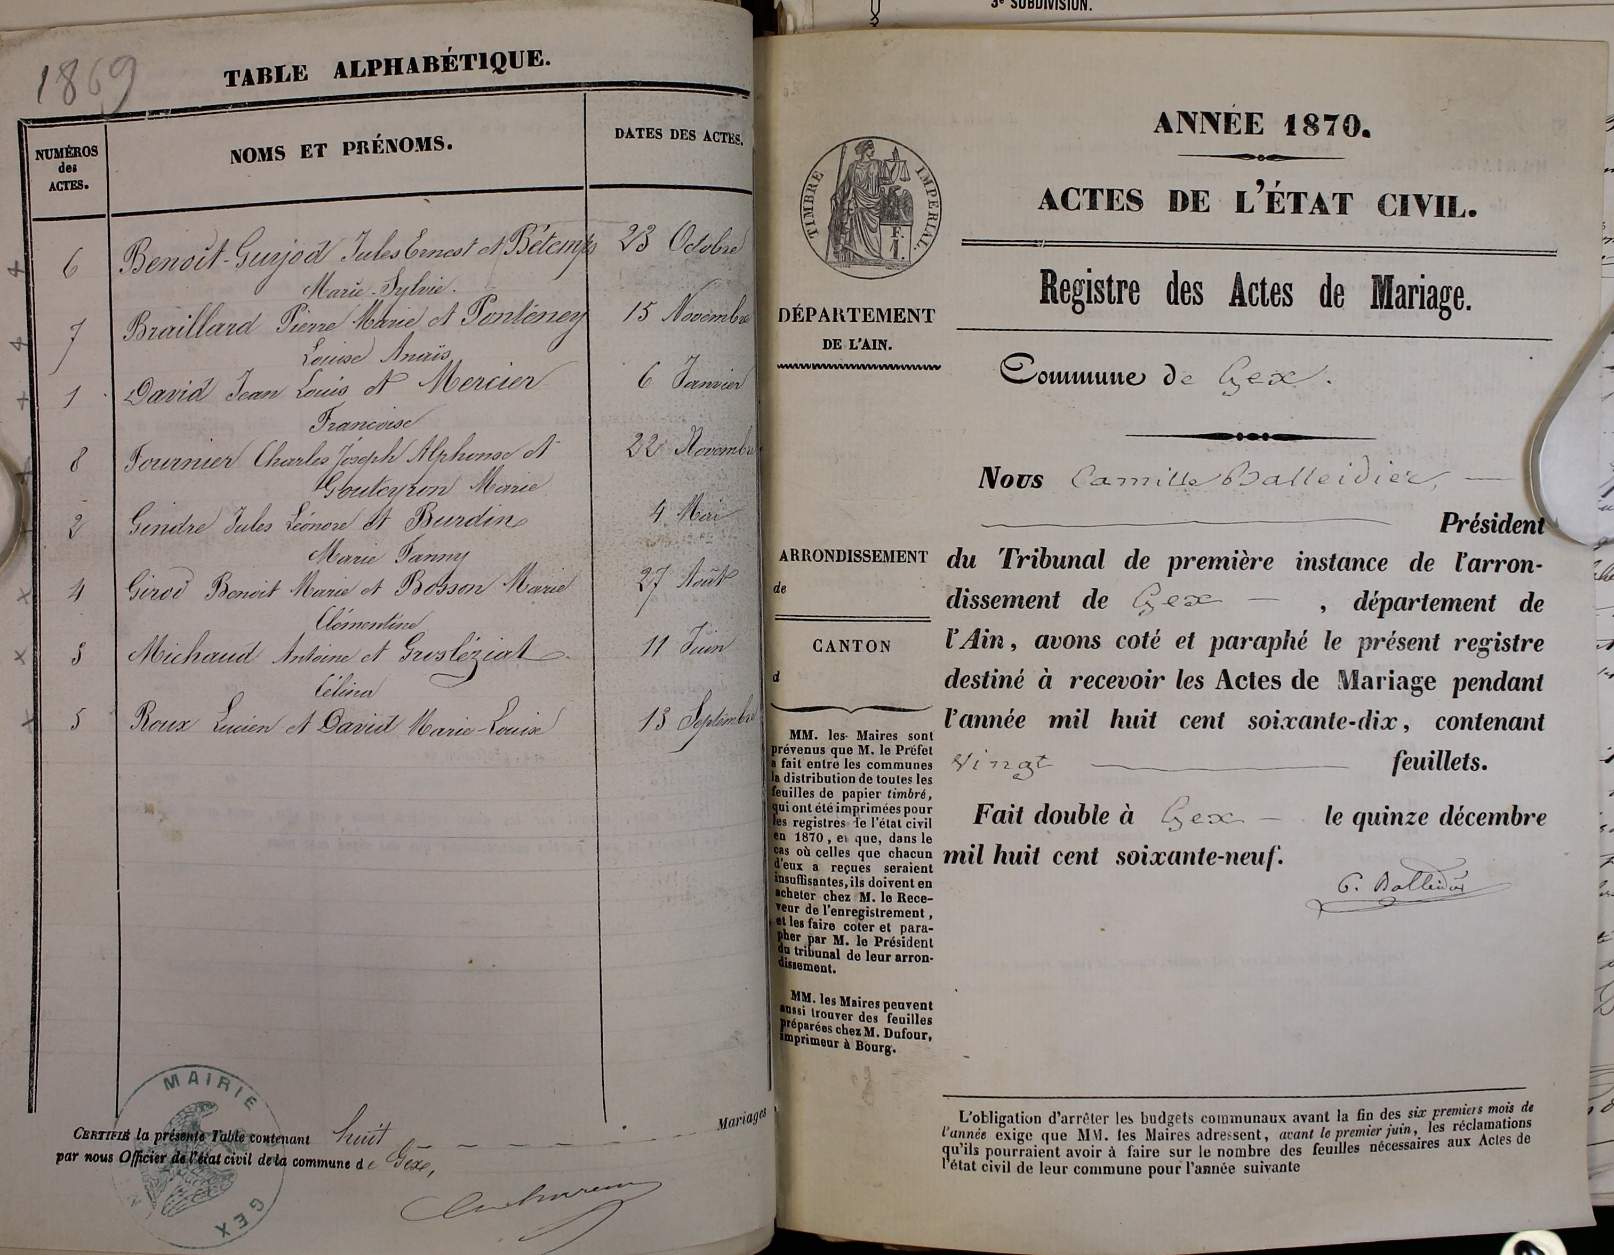 1869
TABLE ALPHABÉTIQUE.
NUMÉROS
des
ACTES.
NOMS ET PRÉNOMS.
DATES DES ACTES.
6 Benoît-Gurjod Jules Ernest et Bétemps 23 Octobre
Marie-Sylvie.
7 Braillard Pierre Marie et Ponténey 15 Novembre
Louise Anaïs
1 David Jean Louis et Mercier 6 Janvier
Francoise
8 Fournier Charles Joseph Alphonse et 22 Novembre
Gouteyron Marie
2 Gindre Jules Léonore et Burdin 4 Mai
Marie Fanny
4 Girod Benoit Marie et Bosson Marie 27 Août
Clémentine
3 Michaud Antoine et Grosléziat 11 Juin
Célina
5 Roux Lucien et David Marie-Louise 13 Septembre
CERTIFIÉ la présente Table contenant huit Mariages
par nous Officier de l'état civil de la commune de Gex,
MAIRIE
GEX
3e SUBDIVISION.
ANNÉE 1870.
ACTES DE L'ÉTAT CIVIL.
TIMBRE IMPÉRIAL.
F.
1.
DÉPARTEMENT
DE L'AIN.
Registre des Actes de Mariage.
Commune de Gex.
Nous Camille Balleidier,
Président
du Tribunal de première instance de l'arron-
dissement de Gex, département de
l'Ain, avons coté et paraphé le présent registre
destiné à recevoir les Actes de Mariage pendant
l'année mil huit cent soixante-dix, contenant
vingt feuillets.
Fait double à Gex le quinze décembre
mil huit cent soixante-neuf.
C. Balleidier
ARRONDISSEMENT
de
CANTON
d
MM. les Maires sont
prévenus que M. le Préfet
a fait entre les communes
la distribution de toutes les
feuilles de papier timbré,
qui ont été imprimées pour
les registres de l'état civil
en 1870, et que, dans le
cas où celles que chacun
d'eux a reçues seraient
insuffisantes, ils doivent en
acheter chez M. le Rece-
veur de l'enregistrement,
et les faire coter et para-
pher par M. le Président
du tribunal de leur arron-
dissement.
MM. les Maires peuvent
aussi trouver des feuilles
préparées chez M. Dufour,
imprimeur à Bourg.
L'obligation d'arrêter les budgets communaux avant la fin des six premiers mois de
l'année exige que MM. les Maires adressent, avant le premier juin, les réclamations
qu'ils pourraient avoir à faire sur le nombre des feuilles nécessaires aux Actes de
l'état civil de leur commune pour l'année suivante